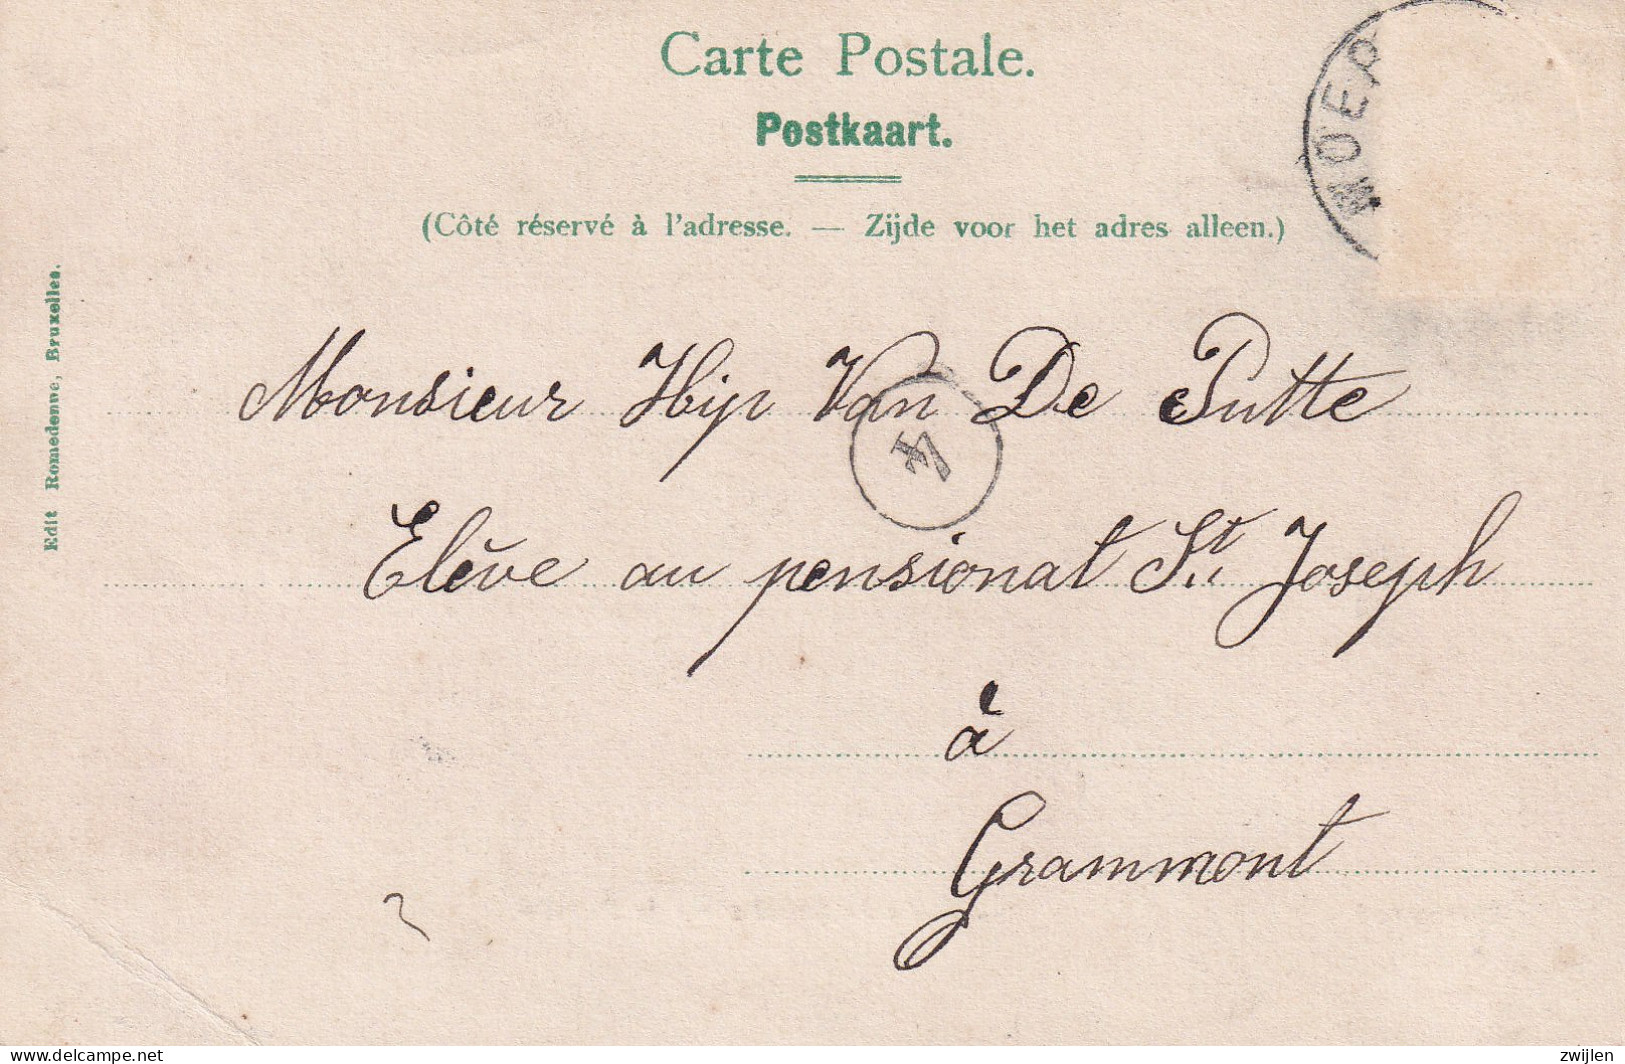 Carte Postale.
Postkaart.
(Côté réservé à l'adresse. — Zijde voor het adres alleen.)
MOER
Edit Romedenne, Bruxelles.
Monsieur Hip Van De Putte
4
Elève au pensionat St. Joseph
à
Grammont
delcampe.net
zwijlen